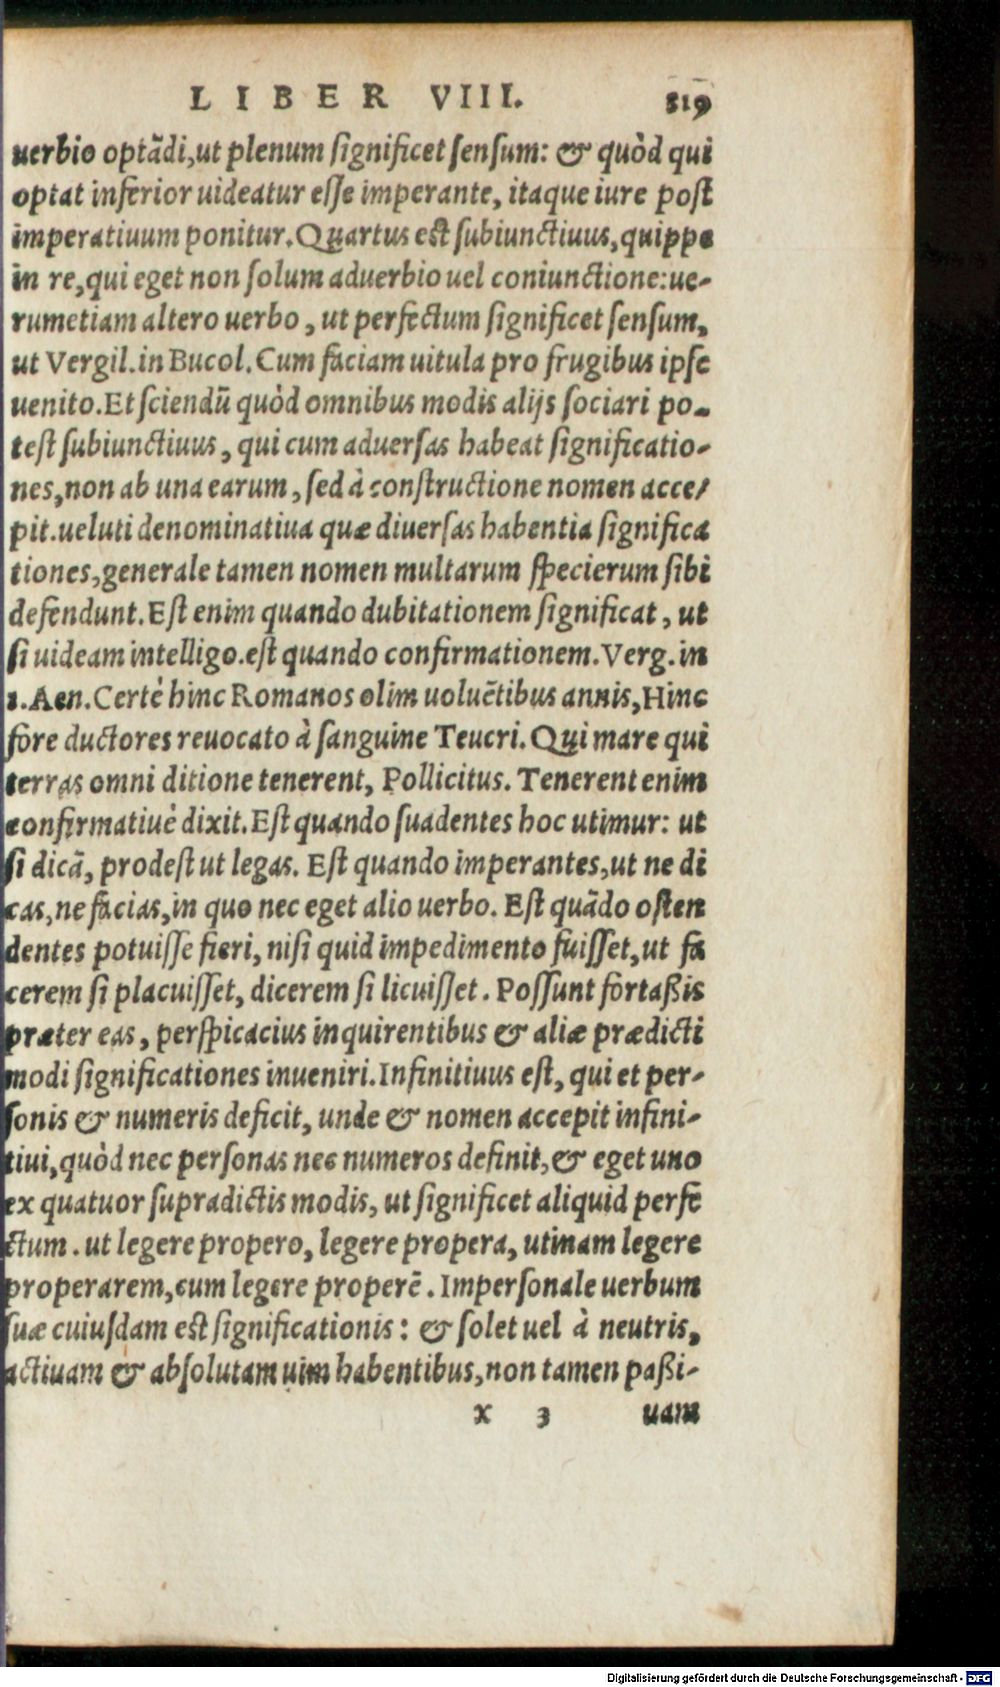 LIBER VIII. 319
uerbio optãdi, ut plenum significet sensum: & quòd qui
optat inferior uideatur esse imperante, itaque iure post
imperatiuum ponitur. Quartus est subiunctiuus, quippe
in re, qui eget non solum aduerbio uel coniunctione: ue-
rumetiam altero uerbo, ut perfectum significet sensum,
ut Vergil. in Bucol. Cum faciam uitula pro frugibus ipse
uenito. Et sciendũ quòd omnibus modis alijs sociari po-
test subiunctiuus, qui cum aduersas habeat significatio-
nes, non ab una earum, sed à constructione nomen acce-
pit. ueluti denominatiua quæ diuersas habentia significa
tiones, generale tamen nomen multarum specierum sibi
defendunt. Est enim quando dubitationem significat, ut
si uideam intelligo. est quando confirmationem. Verg. in
1. Aen. Certè hinc Romanos olim uoluẽtibus annis, Hinc
fore ductores reuocato à sanguine Teucri. Qui mare qui
terras omni ditione tenerent, Pollicitus. Tenerent enim
confirmatiuè dixit. Est quando suadentes hoc utimur: ut
si dicã, prodest ut legas. Est quando imperantes, ut ne di
cas, ne facias, in quo nec eget alio uerbo. Est quãdo osten
dentes potuisse fieri, nisi quid impedimento fuisset, ut fa
cerem si placuisset, dicerem si licuisset. Possunt fortaßis
præter eas, perspicacius inquirentibus & aliæ prædicti
modi significationes inueniri. Infinitiuus est, qui et per-
sonis & numeris deficit, unde & nomen accepit infini-
tiui, quòd nec personas nec numeros definit, & eget uno
ex quatuor supradictis modis, ut significet aliquid perfe
ctum. ut legere propero, legere propera, utinam legere
properarem, cum legere properẽ. Impersonale uerbum
suæ cuiusdam est significationis: & solet uel à neutris,
actiuam & absolutam uim habentibus, non tamen paßi-
x 3 uam
Digitalisierung gefördert durch die Deutsche Forschungsgemeinschaft - DFG